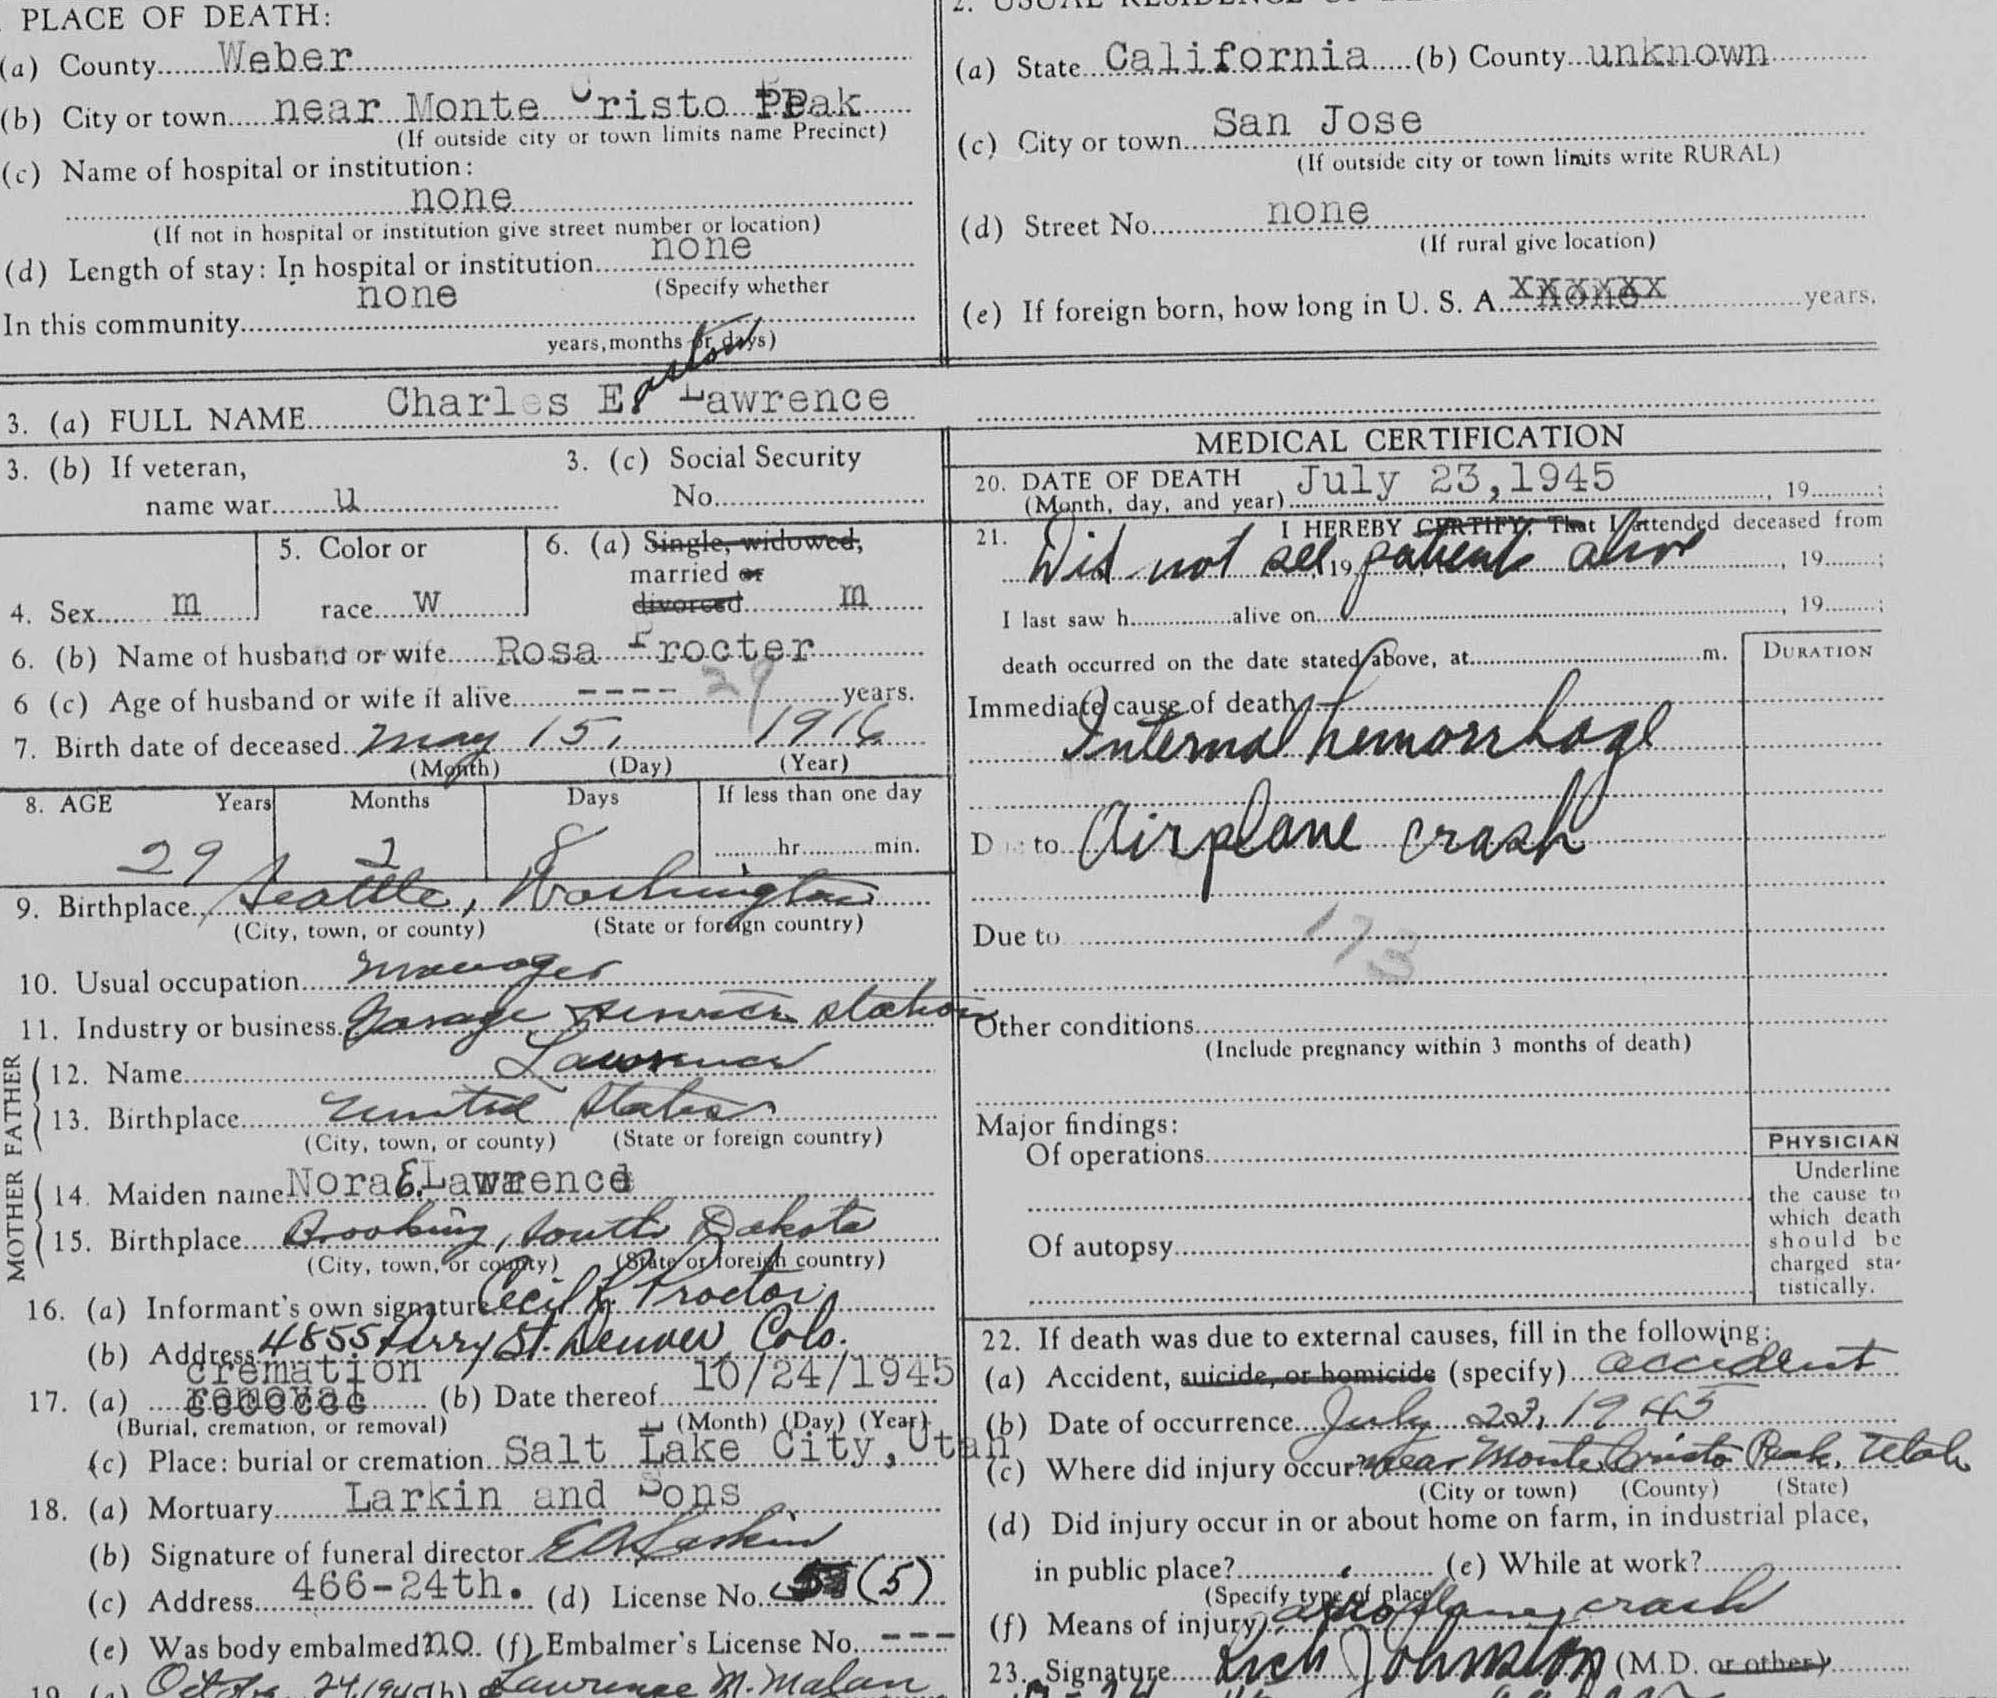 PLACE OF DEATH:
(a) County Weber
(b) City or town near Monte Cristo Peak
(If outside city or town limits name Precinct)
(c) Name of hospital or institution:
none
(If not in hospital or institution give street number or location)
(d) Length of stay: In hospital or institution none
(Specify whether
In this community none
years, months or days)
2. USUAL RESIDENCE OF
(a) State California (b) County unknown
(c) City or town San Jose
(If outside city or town limits write RURAL)
(d) Street No. none
(If rural give location)
(e) If foreign born, how long in U. S. A. none years.
3. (a) FULL NAME Charles Easton Lawrence
3. (b) If veteran,
name war u
3. (c) Social Security
No.
4. Sex m
5. Color or
race W
6. (a) Single, widowed,
married or
divorced m
6. (b) Name of husband or wife Rosa Procter
6 (c) Age of husband or wife if alive ---- 29 years.
7. Birth date of deceased May 15, 1916
(Month) (Day) (Year)
8. AGE Years Months Days If less than one day
29 2 8 hr. min.
9. Birthplace Seattle, Washington
(City, town, or county) (State or foreign country)
10. Usual occupation manager
11. Industry or business Garage service station
FATHER
12. Name Lawrence
13. Birthplace United States
(City, town, or county) (State or foreign country)
MOTHER
14. Maiden name Nora E. Lawrence
15. Birthplace Brooking, South Dakota
(City, town, or county) (State or foreign country)
16. (a) Informant's own signature Cecil Proctor
(b) Address 4855 Perry St. Denver, Colo.
cremation
17. (a) removal (b) Date thereof 10/24/1945
(Burial, cremation, or removal) (Month) (Day) (Year)
(c) Place: burial or cremation Salt Lake City, Utah
18. (a) Mortuary Larkin and Sons
(b) Signature of funeral director Larkin
(c) Address 466-24th. (d) License No. (5)
(e) Was body embalmed no. (f) Embalmer's License No. ---
19. (a) 24, 1945 (b) Lawrence M. Malan
MEDICAL CERTIFICATION
20. DATE OF DEATH July 23, 1945
(Month, day, and year) , 19 ;
21. I HEREBY CERTIFY, That I attended deceased from
Did not see patient alive 19 , 19 ;
I last saw h alive on , 19 ;
death occurred on the date stated above, at m.
DURATION
Immediate cause of death
Internal hemorrhage
Due to Airplane crash
Due to 173
Other conditions
(Include pregnancy within 3 months of death)
Major findings:
Of operations
Of autopsy
PHYSICIAN
Underline
the cause to
which death
should be
charged sta-
tistically.
22. If death was due to external causes, fill in the following:
(a) Accident, suicide, or homicide (specify) accident
(b) Date of occurrence July 23, 1945
(c) Where did injury occur near Monte Cristo Peak, Utah
(City or town) (County) (State)
(d) Did injury occur in or about home on farm, in industrial place,
in public place? (e) While at work?
(Specify type of place)
(f) Means of injury aeroplane crash
23. Signature Rich Johnston (M.D. or other)